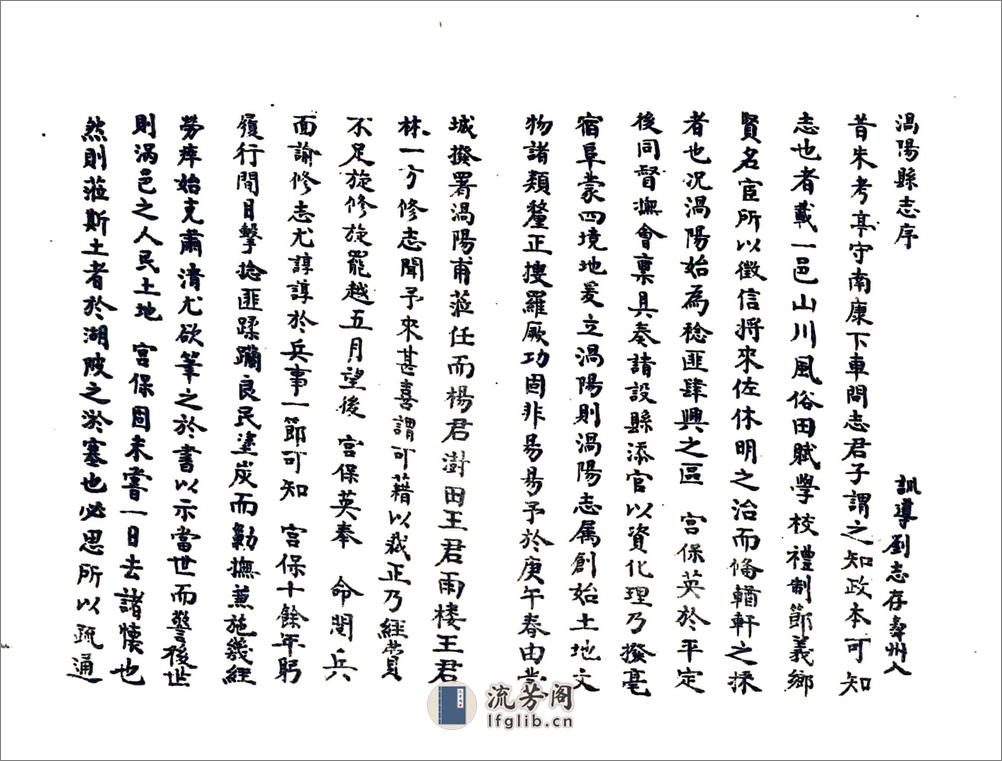 渦陽縣志序
訓導劉志存辜州人
昔朱考亭守南康下車問志君子謂之知政本可知
志也者載一邑山川風俗田賦學校禮制節義鄉
賢名宦所以徵信將來佐休明之治而備輶軒之採
者也況渦陽始為稔匪肆興之區 宮保英於平定
後同督撫會稟具奏請設縣添官以資化理乃撥亳
宿阜蒙四境地爰立渦陽則渦陽志属創始土地文
物諸類釐正搜羅厥功固非易易予於庚午春由蒙
城撥署渦陽甫蒞任而楊君澍田王君雨楼王君
林一方修志聞予來甚喜謂可藉以裁正乃經費
不足旋修旋罷越五月望後 宮保英奉 命閱兵
面諭修志尤諄諄於兵事一節可知 宮保十餘年躬
履行間目擊捻匪蹂躪良民塗炭而勦撫蒹施幾經
勞瘁始克肅清尤欲筆之於書以示當世而警後世
則涡邑之人民土地 宮保固未嘗一日去諸懷也
然則蒞斯土者於湖陂之淤塞也必思所以疏通
流芳阁
lfglib.cn